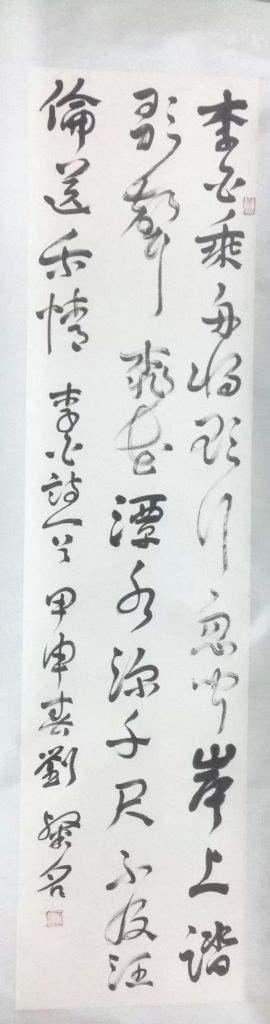 李白乘舟將欲行忽聞岸上踏
歌聲桃花潭水深千尺不及汪
倫送我情 李白詩一首 甲申春劉粲名